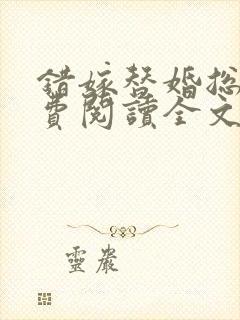 錯嫁替婚总
費閱讀全文
靈巖